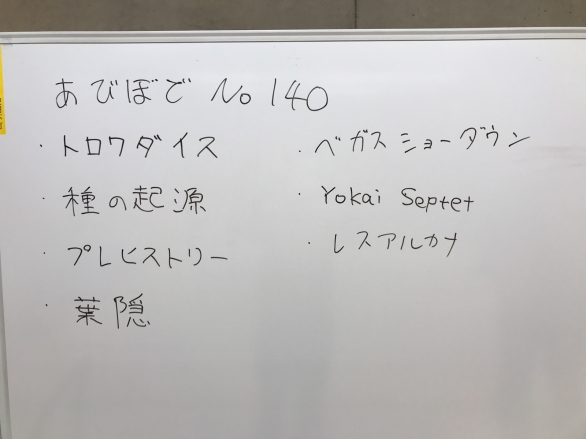 あびぼど No 140
・トロワダイス
・種の起源
・プレヒストリー
・葉隠
・ベガスショーダウン
・Yokai Septet
・レスアルカナ